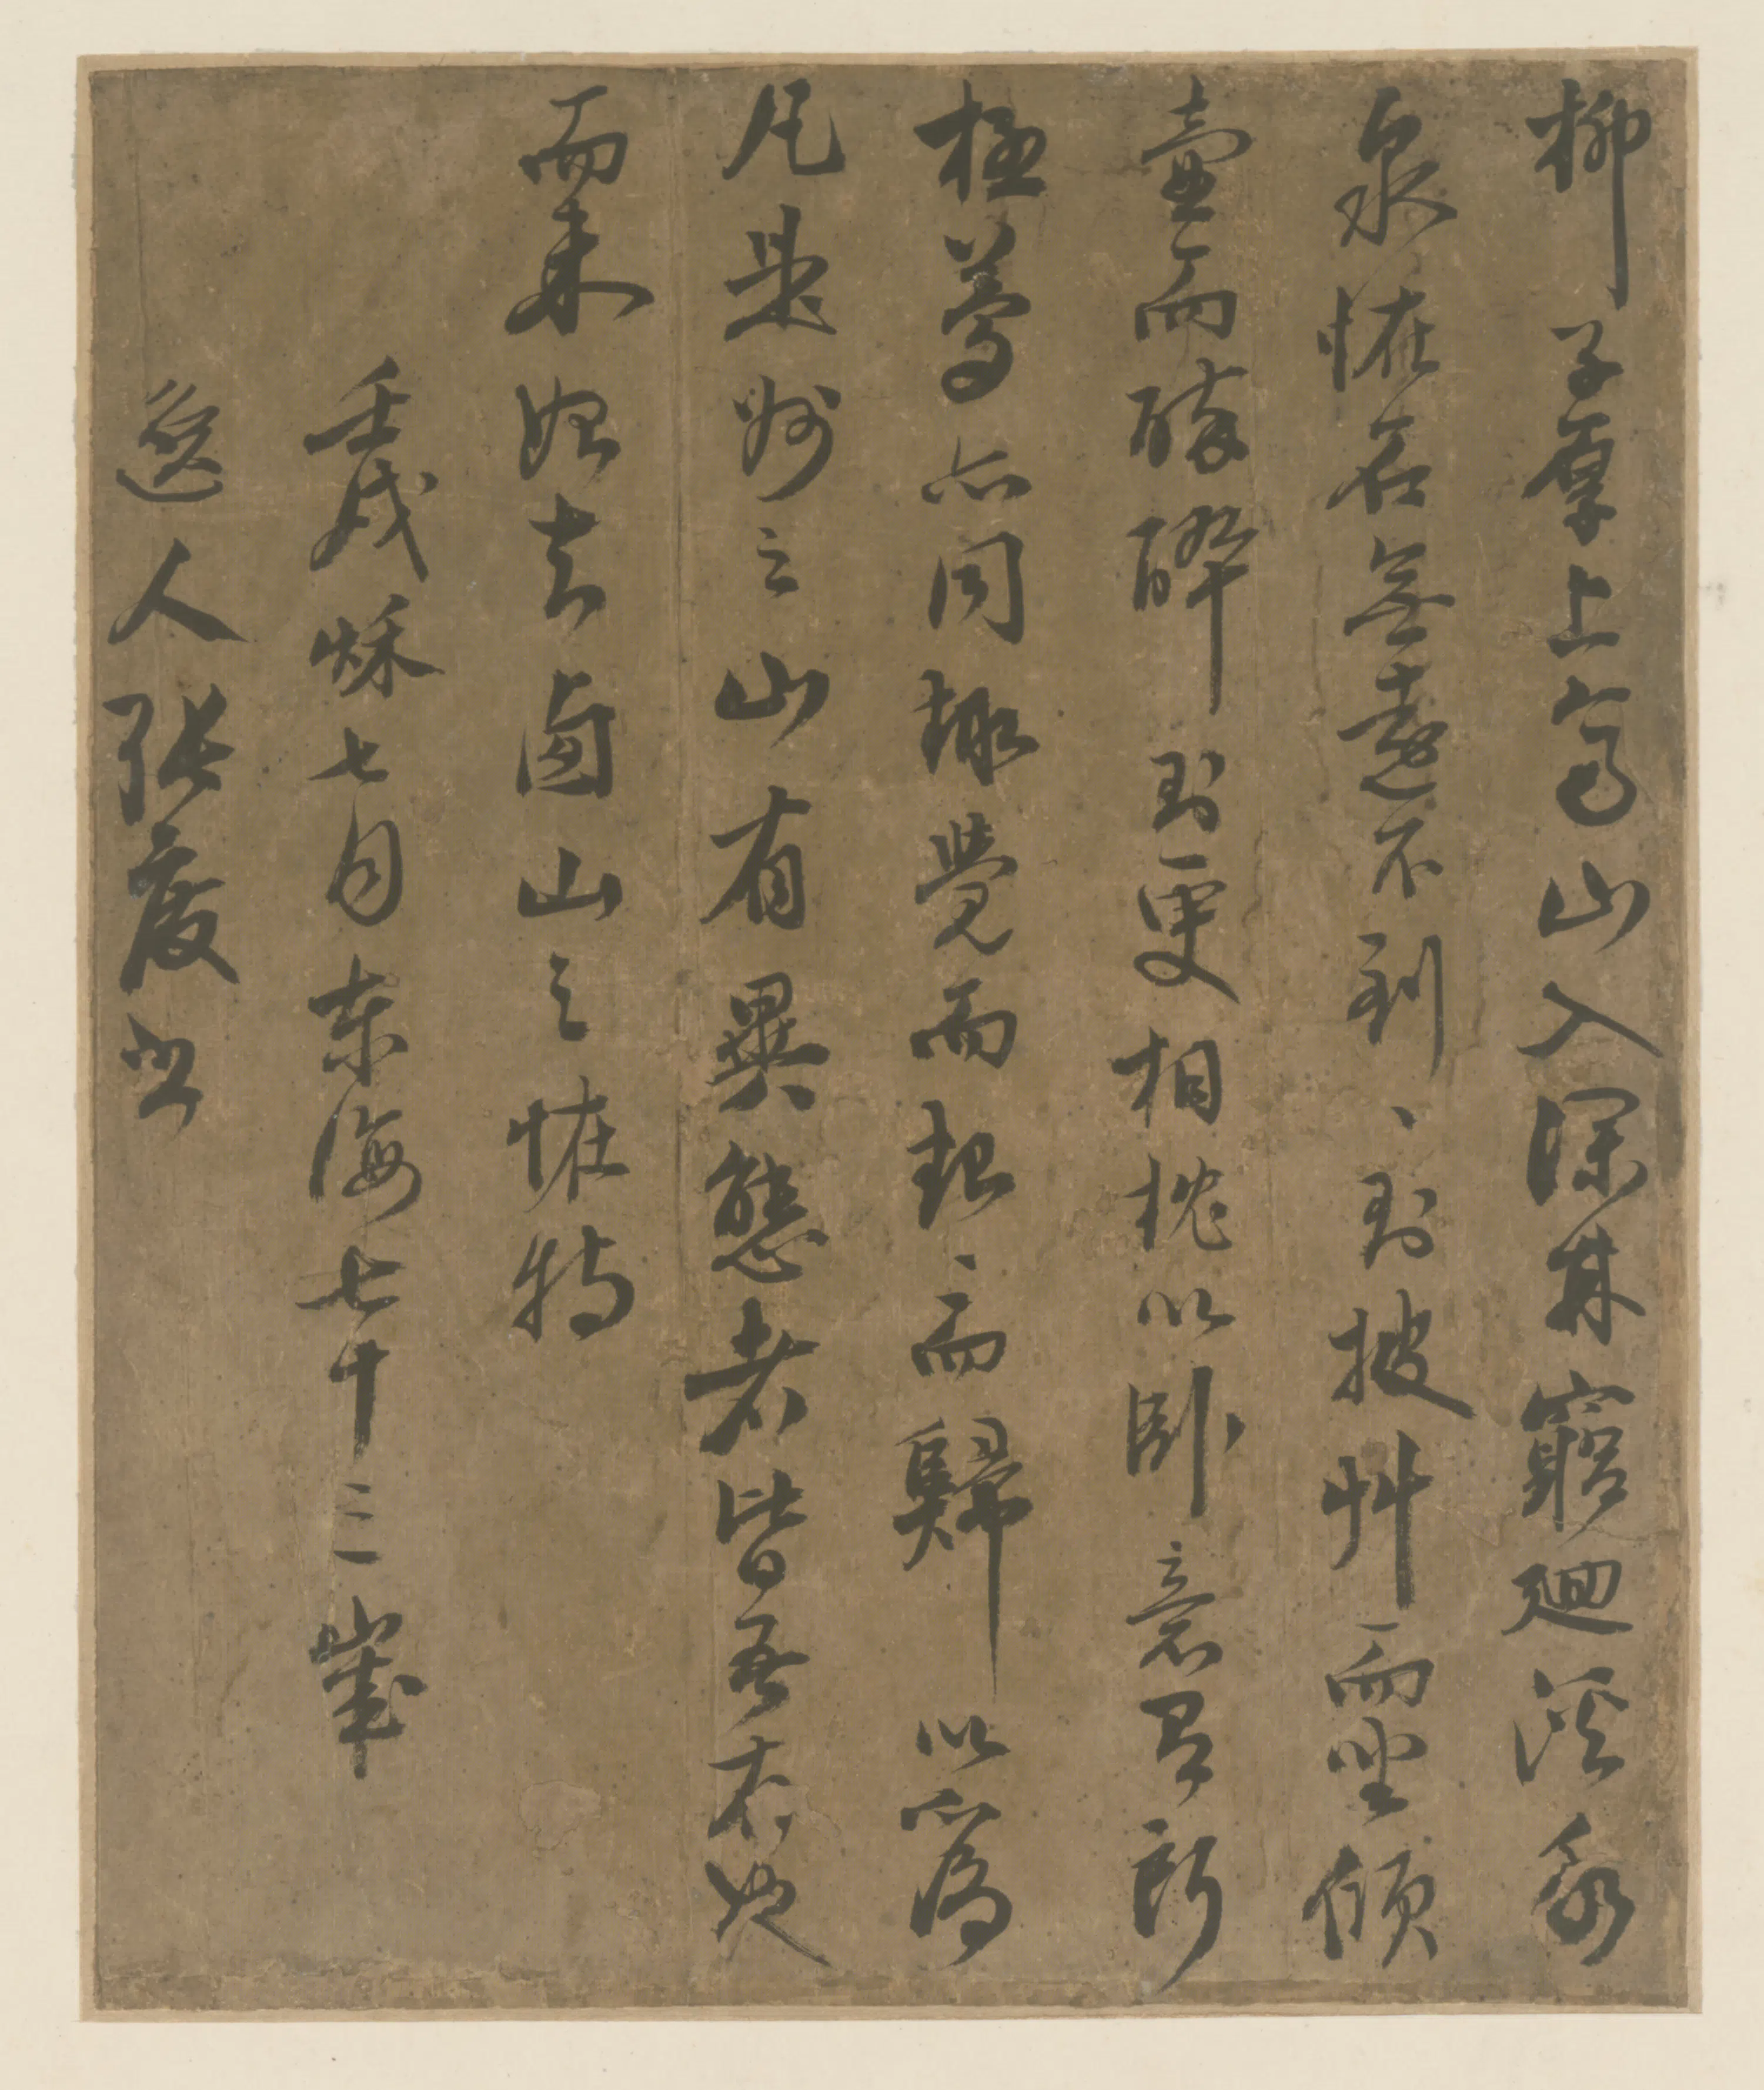 柳子厚上高山入深林窮廻溪幽
泉恠石無遠不到、則披艸而坐傾
壺而醉醉則更相枕以臥意有所
極夢亦同趣覺而起、而歸以為
凡是州之山有異態者皆吾有也
而未始知西山之恠特
壬戌秋七月東海七十三歲
逸人張書